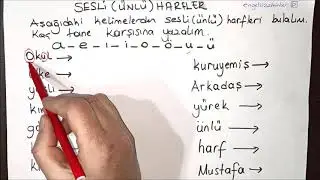 SESLİ (ÜNLÜ) HARFLER
Aşağıdaki kelimelerden sesli (ünlü) harfleri bulalım.
Kaç tane karşısına yazalım.
a - e - ı - i - o - ö - u - ü
Okul →
kuruyemiş →
Arkadaş →
yürek →
ünlü →
harf →
Mustafa →